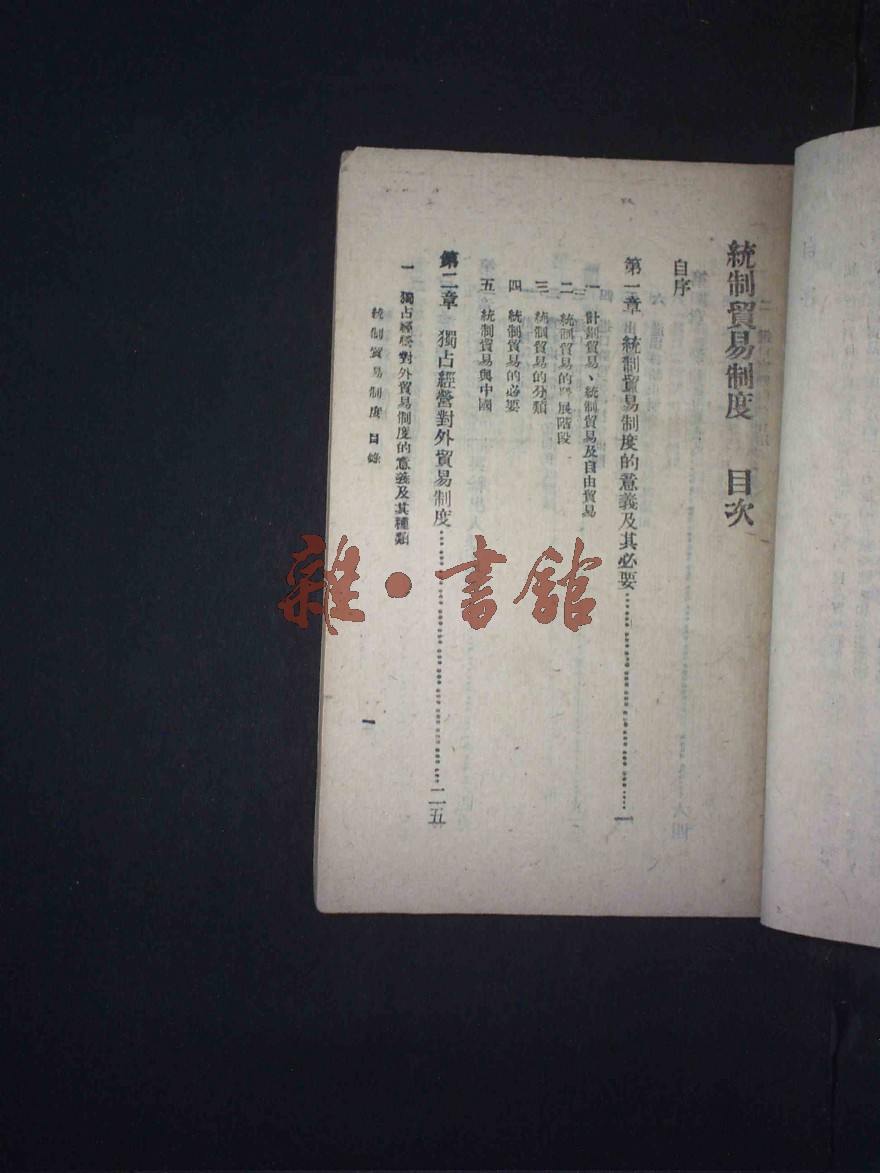 統制貿易制度 目次
自序
第一章 統制貿易制度的意義及其必要…………………………一
一 計劃貿易、統制貿易及自由貿易
二 統制貿易的發展階段
三 統制貿易的分類
四 統制貿易的必要
五 統制貿易與中國
第二章 獨占經營對外貿易制度…………………………二五
一 獨占經營對外貿易制度的意義及其種類
統制貿易制度 目錄
一
雜·書館